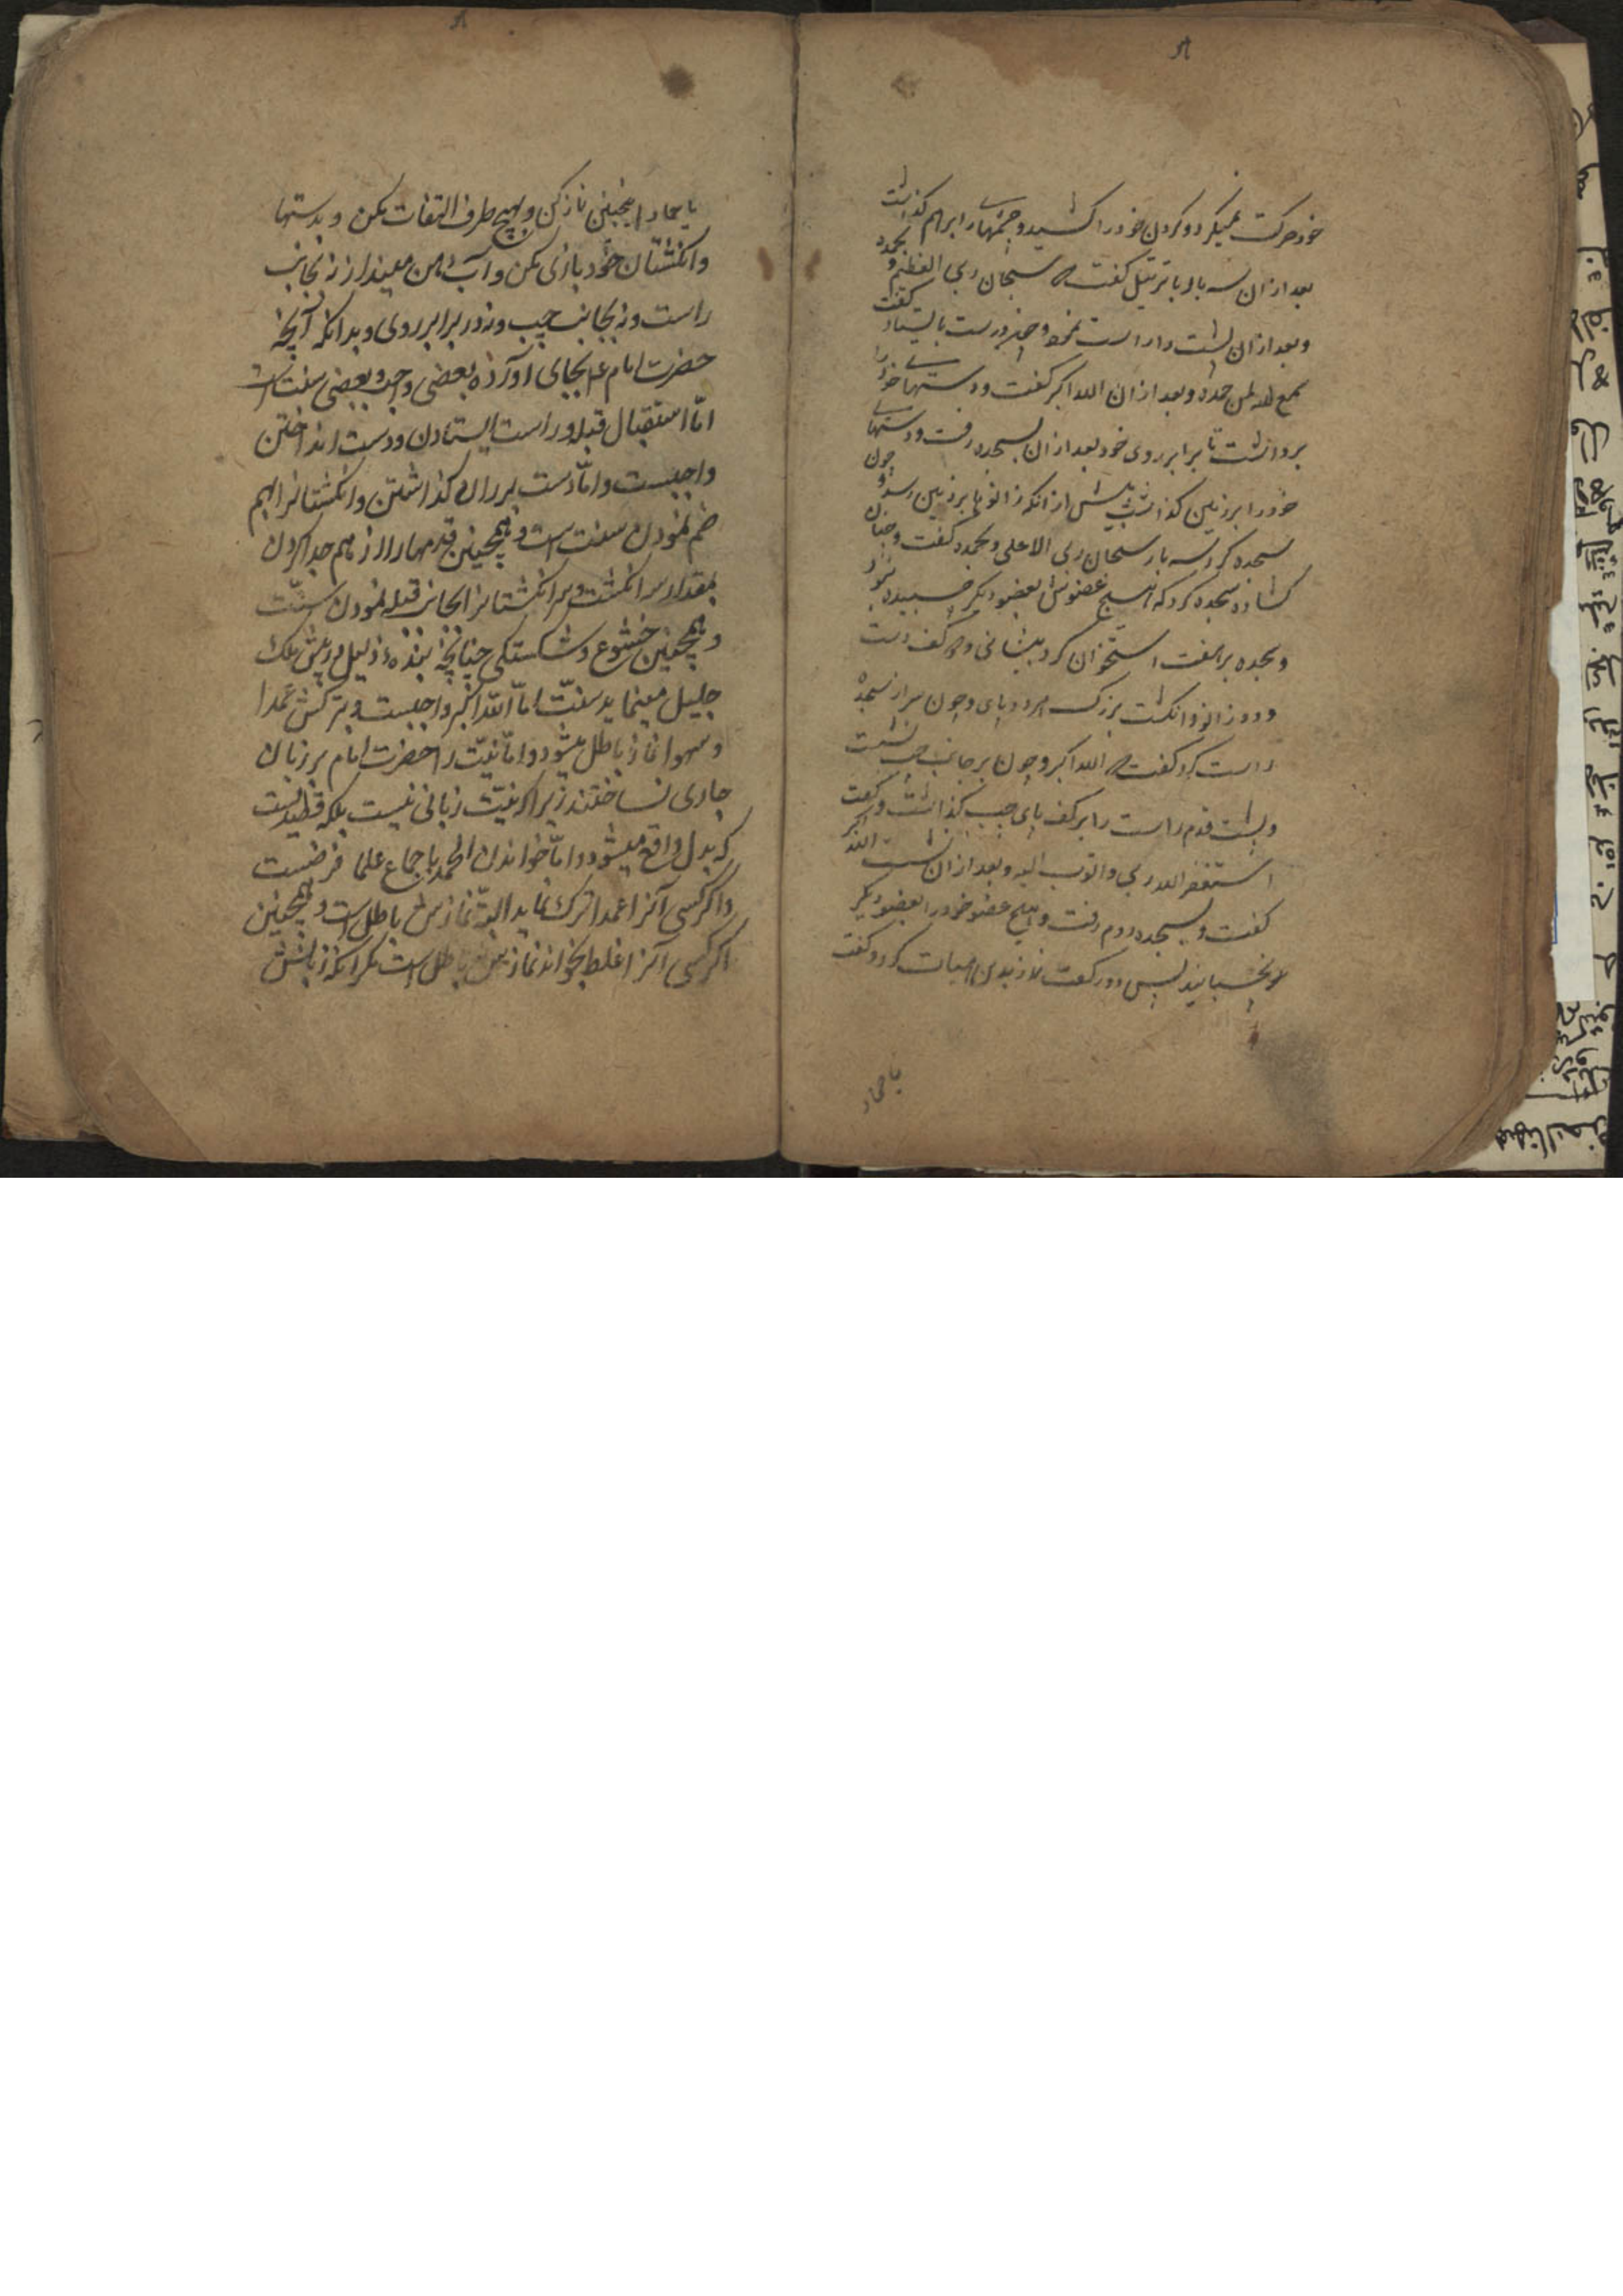 خود حرکت نمیکرد و کردن خود را کشید و چشمها را برهم کذاشت
بعد از ان سه بار با ترتیل کفت که سبحان ربی العظیم و بحمده
و بعد از ان پشت را راست نمود و چون درست بایستاد کفت
سمع الله لمن حمده و بعد از ان الله اکبر کفت و دستهای خود را
برداشت تا برابر روی خود بعد از ان بسجده رفت و دستهای
خود را بر زمین کذاشت پیش از انکه زانوها بر زمین رسد و چون
سجده کرد سه بار سبحان ربی الاعلی و بحمده کفت و چنان
کشاده سجده کرد که هیچ عضوش بعضو دیکر چسبیده نبود
و سجده بر هفت استخوان کرد پیشانی و دو کف دست
و دو زانو و انکشت بزرک هر دو پای و چون سر از سجده
راست کرد کفت که الله اکبر و چون بر جانب چپ نشست
و پشت قدم راست را بر کف پای چپ کذاشت و کفت
استغفر الله ربی و اتوب الیه و بعد از ان الله اکبر
کفت و بسجده دوم رفت و هیچ عضو خود را بعضو دیکر
نچسبانید پس دو رکعت نماز بدین هیات کرد و کفت
یا حماد
یا حماد اینچنین نماز کن و بهیچ طرف التفات مکن و بدستها
و انکشتان خود بازی مکن و آب دهن میندار نه بجانب
راست و نه بجانب چپ و نه در برابر روی و بدانکه آنچه
حضرت امام ع بجای آورده بعضی واجب و بعضی سنت است
امّا استقبال قبله و راست ایستادن و دست انداختن
واجبست و امّا دست بر ران کذاشتن و انکشتانرا بهم
ضم نمودن سنت است و همچنین قدمها را از هم جدا کردن
بمقدار سه انکشت و سر انکشتانرا بجانب قبله نمودن سنّت
و همچنین خشوع و شکستکی چنانچه بنده ذلیل در پیش ملک
جلیل مینماید سنّت امّا الله اکبر واجبست و بترکش عمدا
و سهوا نماز باطل میشود و امّا نیّت را حضرت امام بر زبان
جاری نساختند زیرا که نیّت زبانی نیست بلکه قصدیست
که بدل واقع میشود و امّا خواندن الحمد باجماع علما فرضست
و اکر کسی آنرا عمدا ترک نماید البتّه نمازش باطل است و همچنین
اکر کسی آنرا غلط بخواند نمازش باطل است مکر انکه زبانش